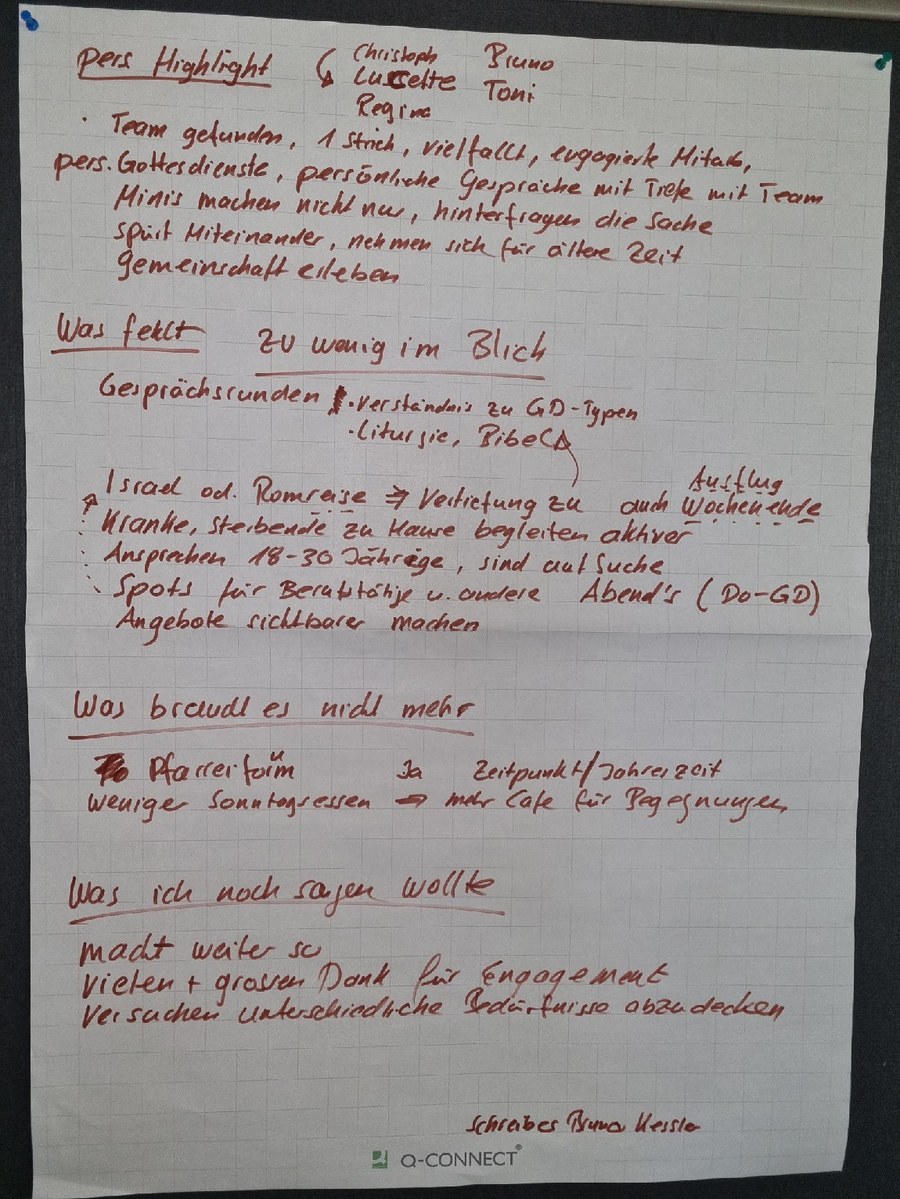 pers Highlight
Christoph Bruno
Lucette Toni
Regina
· Team gefunden, 1 Strich, vielfallt, engagierte Mitarb,
pers. Gottesdienste, persönliche Gespräche mit Tiefe mit Team
Minis machen nicht nur, hinterfragen die Sache
spürt Miteinander, nehmen sich für ältere Zeit
Gemeinschaft erleben
Was fehlt zu wenig im Blick
Gesprächsrunden · Verständnis zu GD-Typen
· Liturgie, Bibel
Ausflug
Israel od. Romreise ⇒ Vertiefung zu auch Wochenende
Kranke, sterbende zu Hause begleiten aktiver
Ansprechen 18-30 Jährige, sind auf Suche
Spots für Berufstätige u. andere Abend's (Do-GD)
Angebote sichtbarer machen
Was braucht es nicht mehr
Pfarreiforum Ja Zeitpunkt/Jahreszeit
weniger Sonntagsessen → mehr Cafe für Begegnungen
Was ich noch sagen wollte
macht weiter so
vielen + grossen Dank für Engagement
Versuchen unterschiedliche Bedürfnisse abzudecken
Schreiber Bruno Kessler
Q-CONNECT®